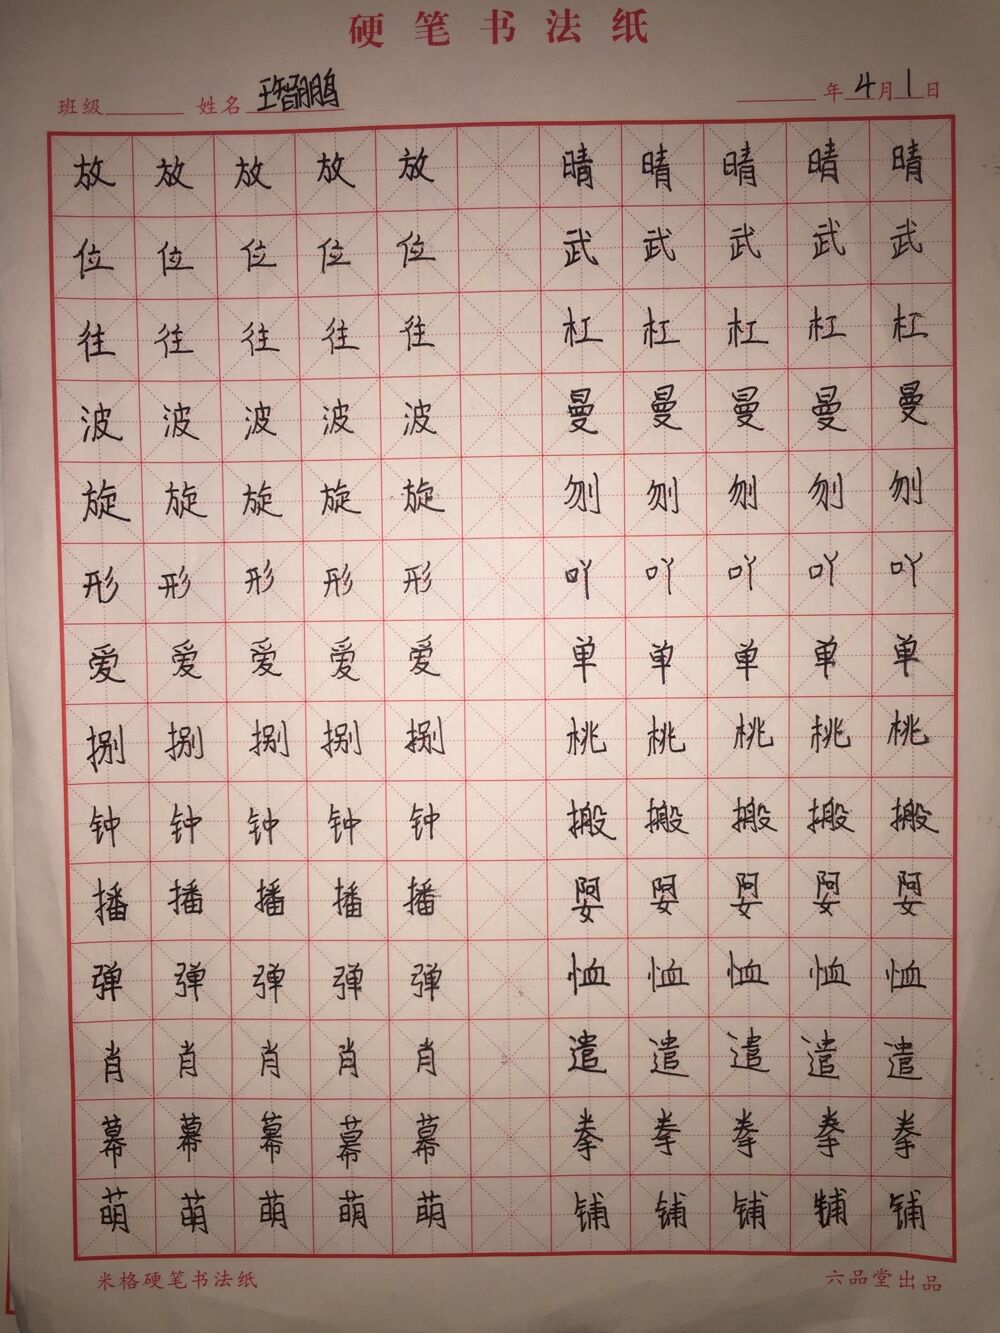 硬笔书法纸
班级 姓名 王智鹏 年 4 月 1 日
放 放 放 放 放 晴 晴 晴 晴 晴
位 位 位 位 位 武 武 武 武 武
往 往 往 往 往 杠 杠 杠 杠 杠
波 波 波 波 波 曼 曼 曼 曼 曼
旋 旋 旋 旋 旋 刎 刎 刎 刎 刎
形 形 形 形 形 吖 吖 吖 吖 吖
爱 爱 爱 爱 爱 单 单 单 单 单
捌 捌 捌 捌 捌 桃 桃 桃 桃 桃
钟 钟 钟 钟 钟 搬 搬 搬 搬 搬
播 播 播 播 播 婴 婴 婴 婴 婴
弹 弹 弹 弹 弹 恤 恤 恤 恤 恤
肖 肖 肖 肖 肖 遣 遣 遣 遣 遣
幕 幕 幕 幕 幕 拳 拳 拳 拳 拳
萌 萌 萌 萌 萌 铺 铺 铺 铺 铺
米格硬笔书法纸 六品堂出品